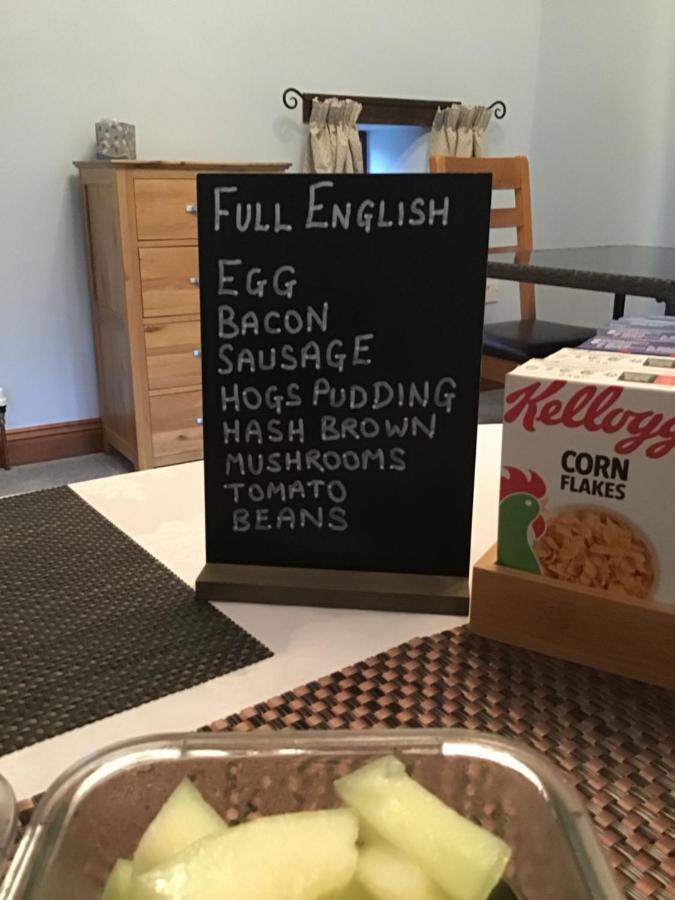 FULL ENGLISH
EGG
BACON
SAUSAGE
HOGS PUDDING
HASH BROWN
MUSHROOMS
TOMATO
BEANS
Kellogg
CORN
FLAKES